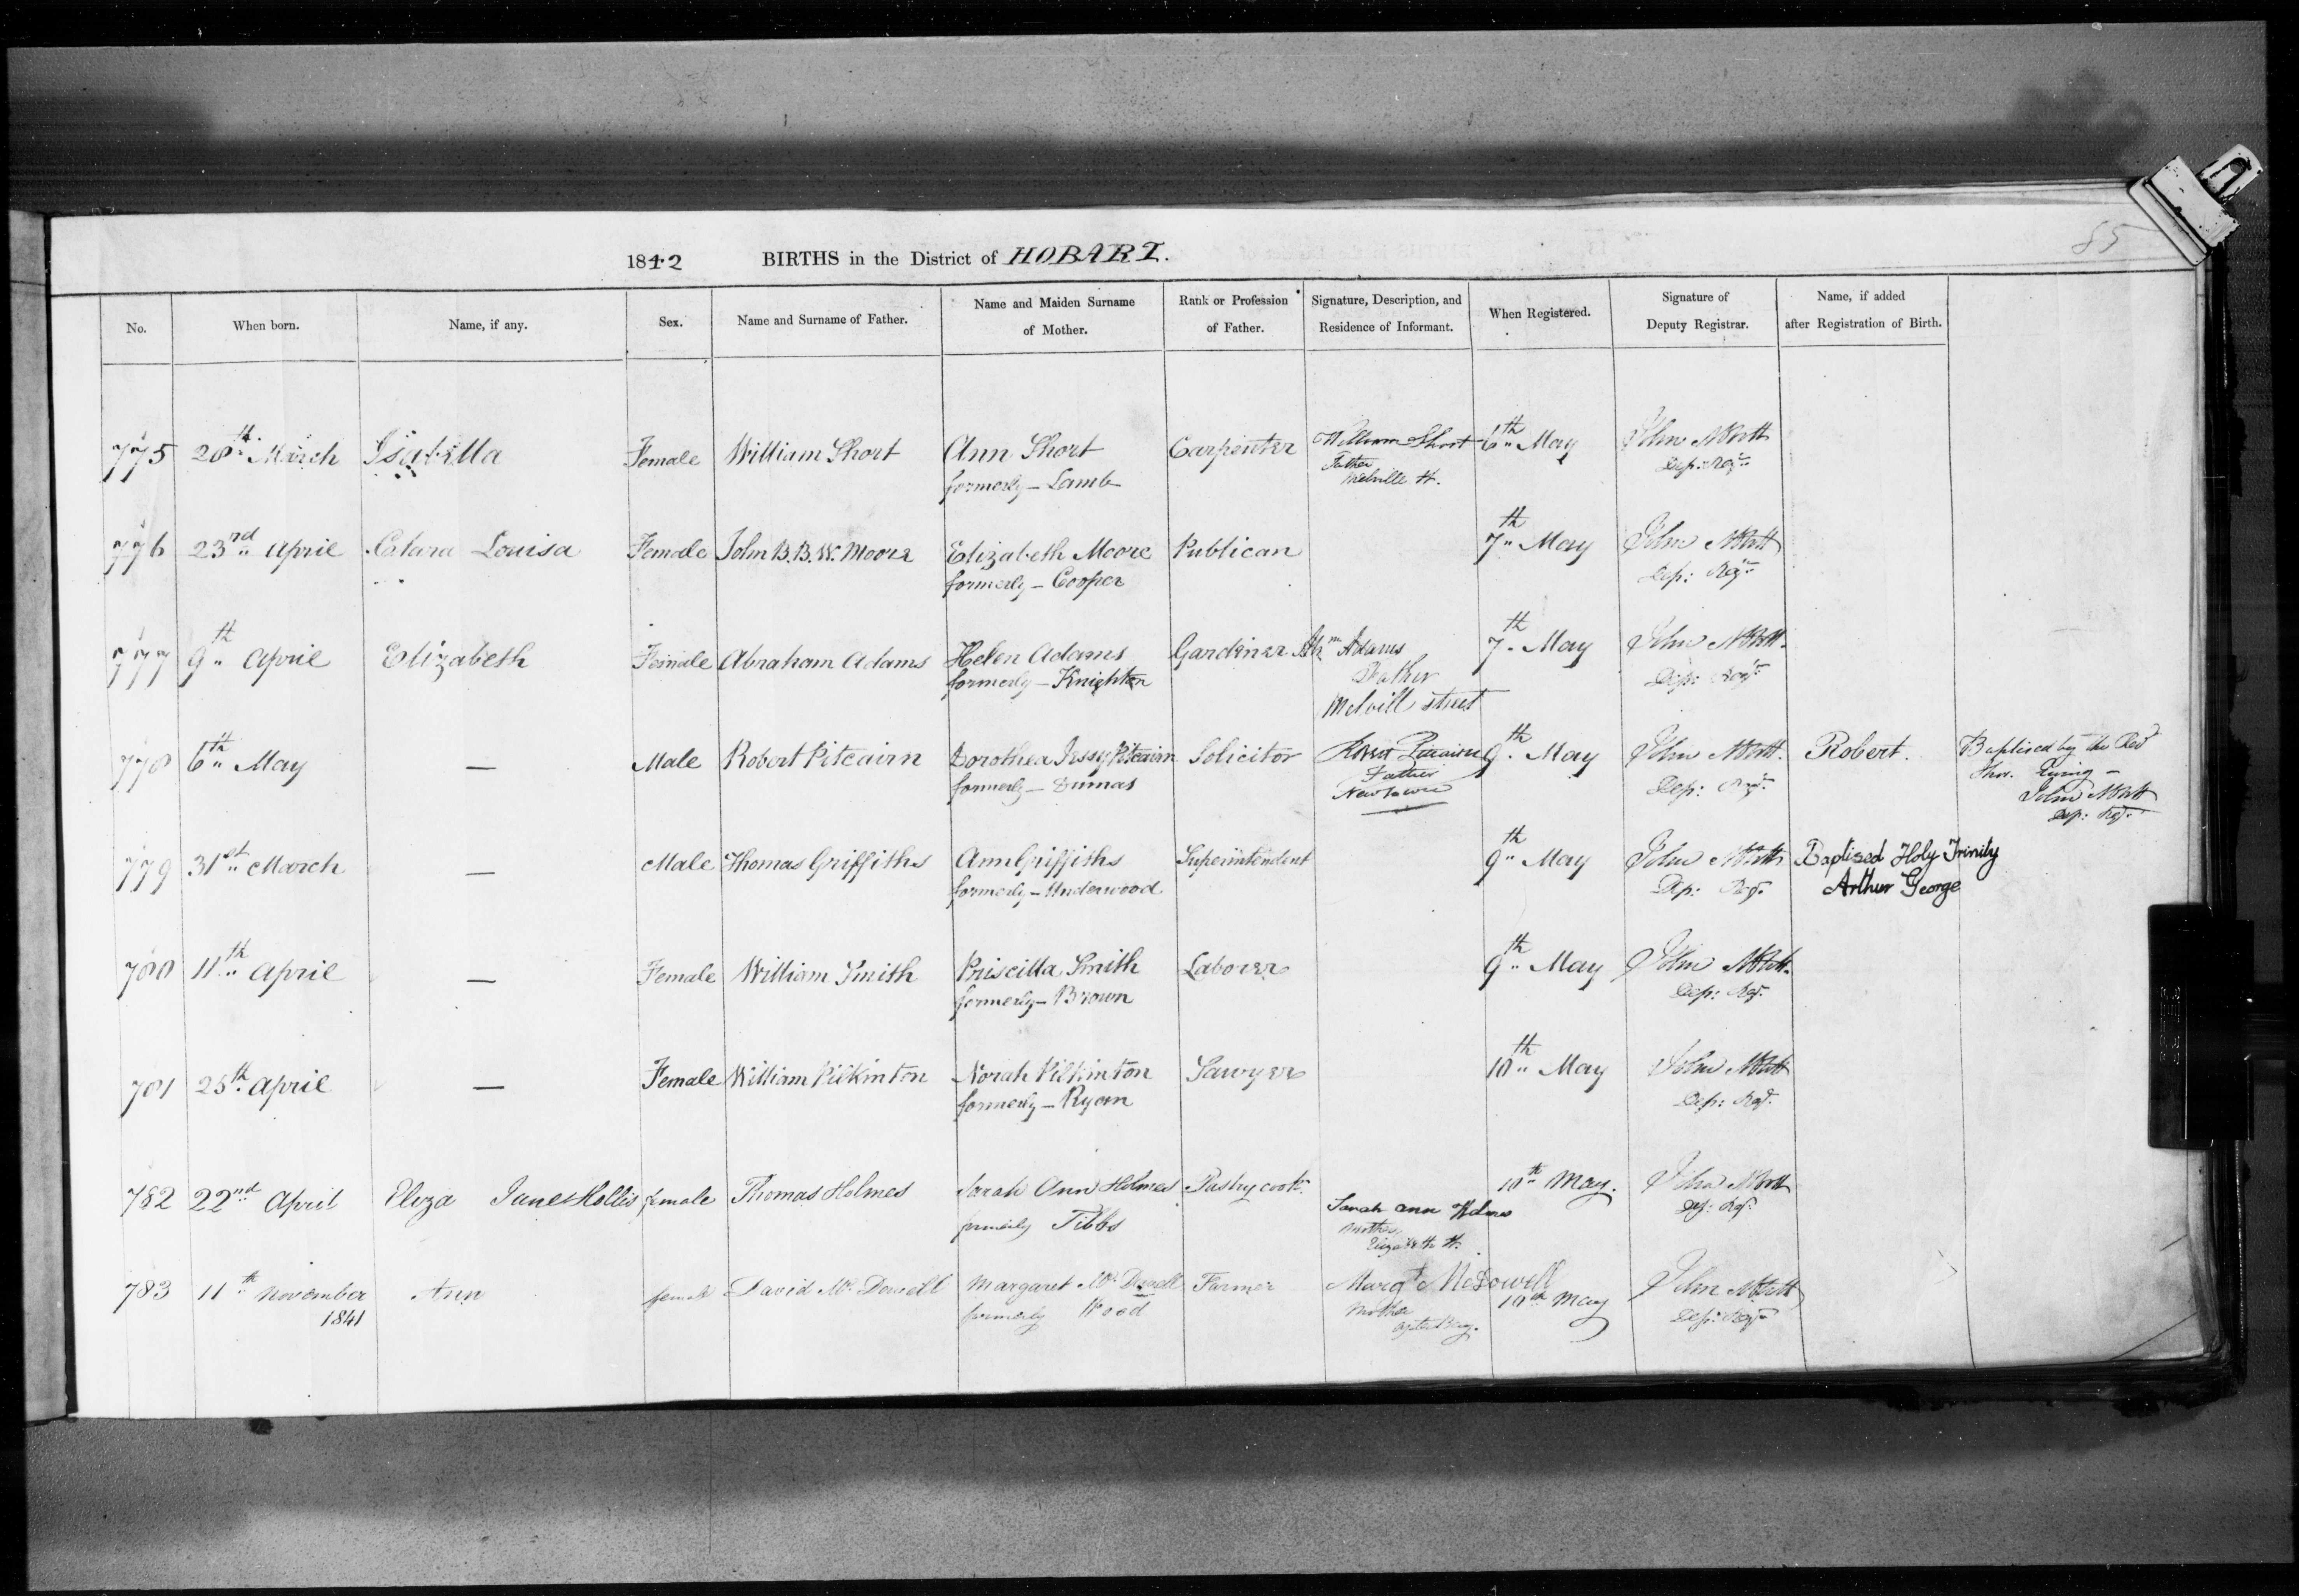 85
1842 BIRTHS in the District of HOBART.
No. When born. Name, if any. Sex. Name and Surname of Father. Name and Maiden Surname of Mother. Rank or Profession of Father. Signature, Description, and Residence of Informant. When Registered. Signature of Deputy Registrar. Name, if added after Registration of Birth.
775 28th March Isabella Female William Short Ann Short Carpenter William Short 6th May John Abbott
formerly - Lamb Father Dep: Regr
Melville St.
776 23rd April Clara Louisa Female John B. B. W. Moore Elizabeth Moore Publican 7th May John Abbott
formerly - Cooper Dep: Regr
777 9th April Elizabeth Female Abraham Adams Helen Adams Gardiner Abm Adams 7th May John Abbott
formerly - Knighton Father Dep: Regr
Melvill street
778 6th May — Male Robert Pitcairn Dorothea Jessy Pitcairn Solicitor Robert Pitcairn 9th May John Abbott Robert. Baptised by the Revd
formerly - Dumas Father Dep: Regr Thos.
Newtown John Abbott
Dep: Regr
779 31st March — Male Thomas Griffiths Ann Griffiths Superintendent 9th May John Abbott Baptised Holy Trinity
formerly - Underwood Dep: Regr Arthur George
780 11th April — Female William Smith Priscilla Smith Laborer 9th May John Abbott
formerly - Brown Dep: Regr
781 25th April — Female William Pilkinton Norah Pilkinton Sawyer 10th May John Abbott
formerly - Ryan Dep: Regr
782 22nd April Eliza Jane Hollis female Thomas Holmes Sarah Ann Holmes Pastrycook 10th May. John Abbott
formerly Tibbs Sarah ann Holmes Dep: Regr
Mother
Elizabeth St.
783 11th November Ann female David McDowell Margaret McDowell Farmer Margt McDowell 10th May John Abbott
1841 formerly Wood Mother Dep: Regr